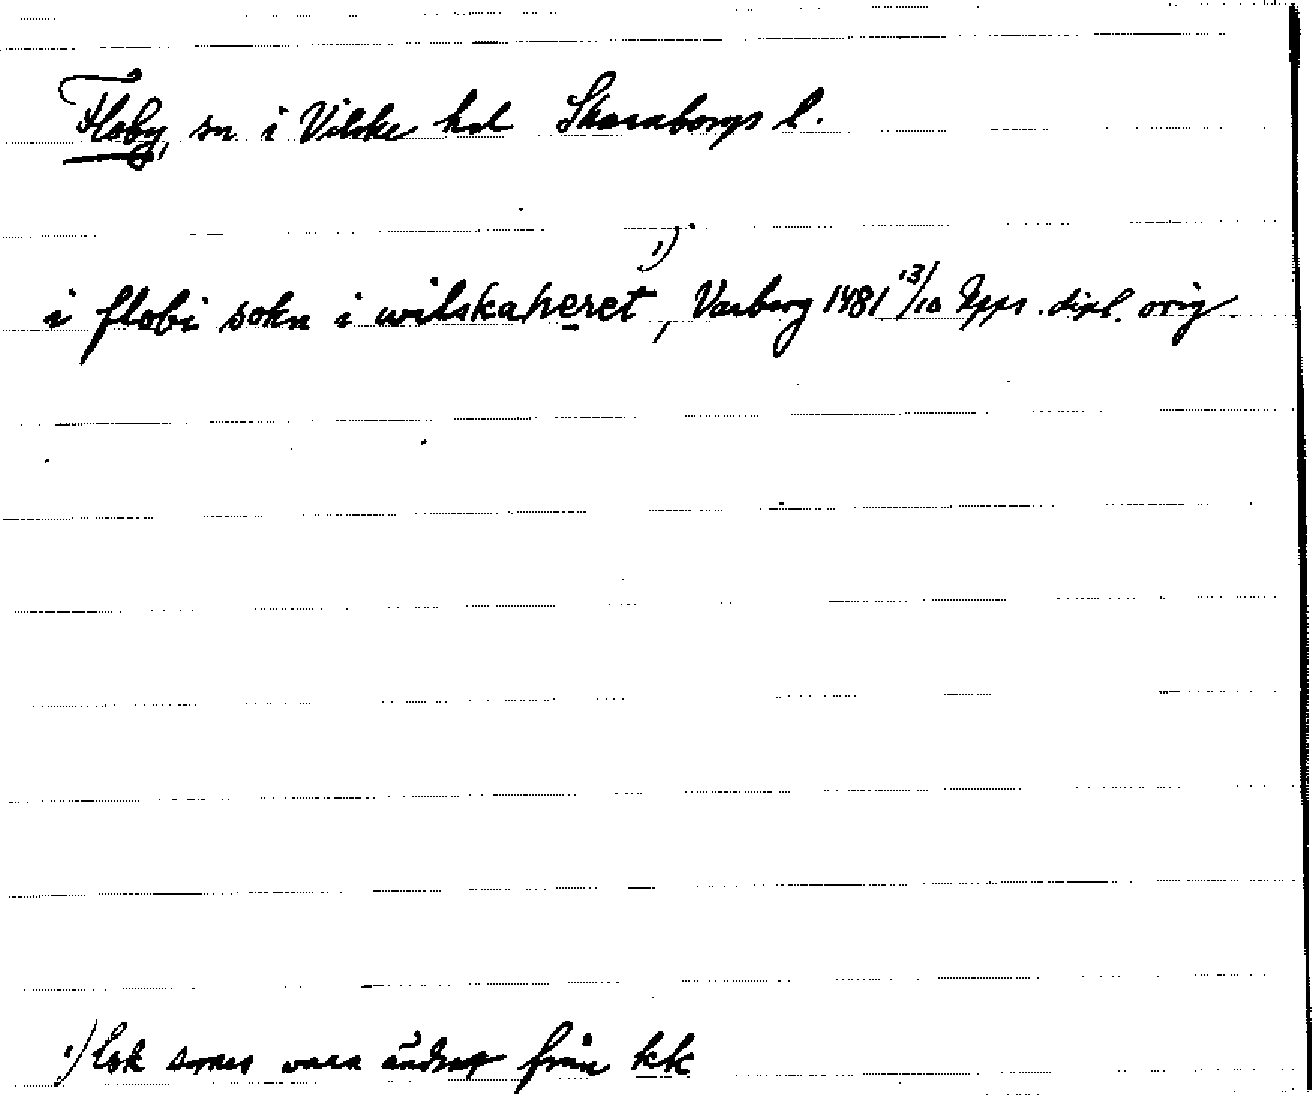 Floby, sn i Vilske hd Skaraborgs l.
i flobi sokn i wilskaheret ¹⁾, Varberg 1481 13/10 Upps. dipl. orig.
¹⁾ lsk synes vara ändrat från kk